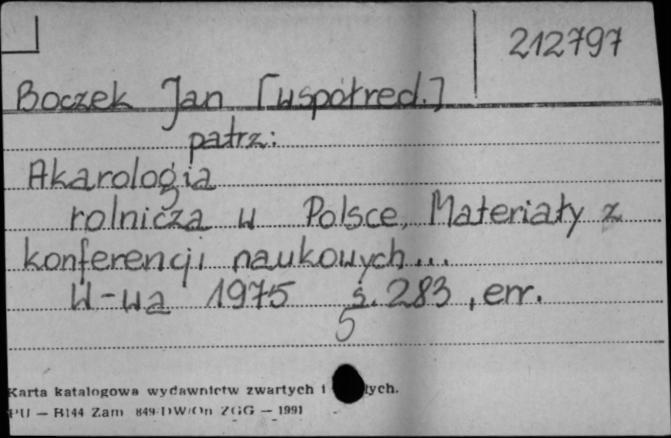 212797
Boczek Jan [współred.]
patrz:
Akarologia
rolnicza w Polsce, Materiały z
konferencji naukowych...
W-wa 1975 s. 283, err.
5
Karta katalogowa wydawnictw zwartych i
PU — B144 Zam 849 DW/On ZGG — 1991